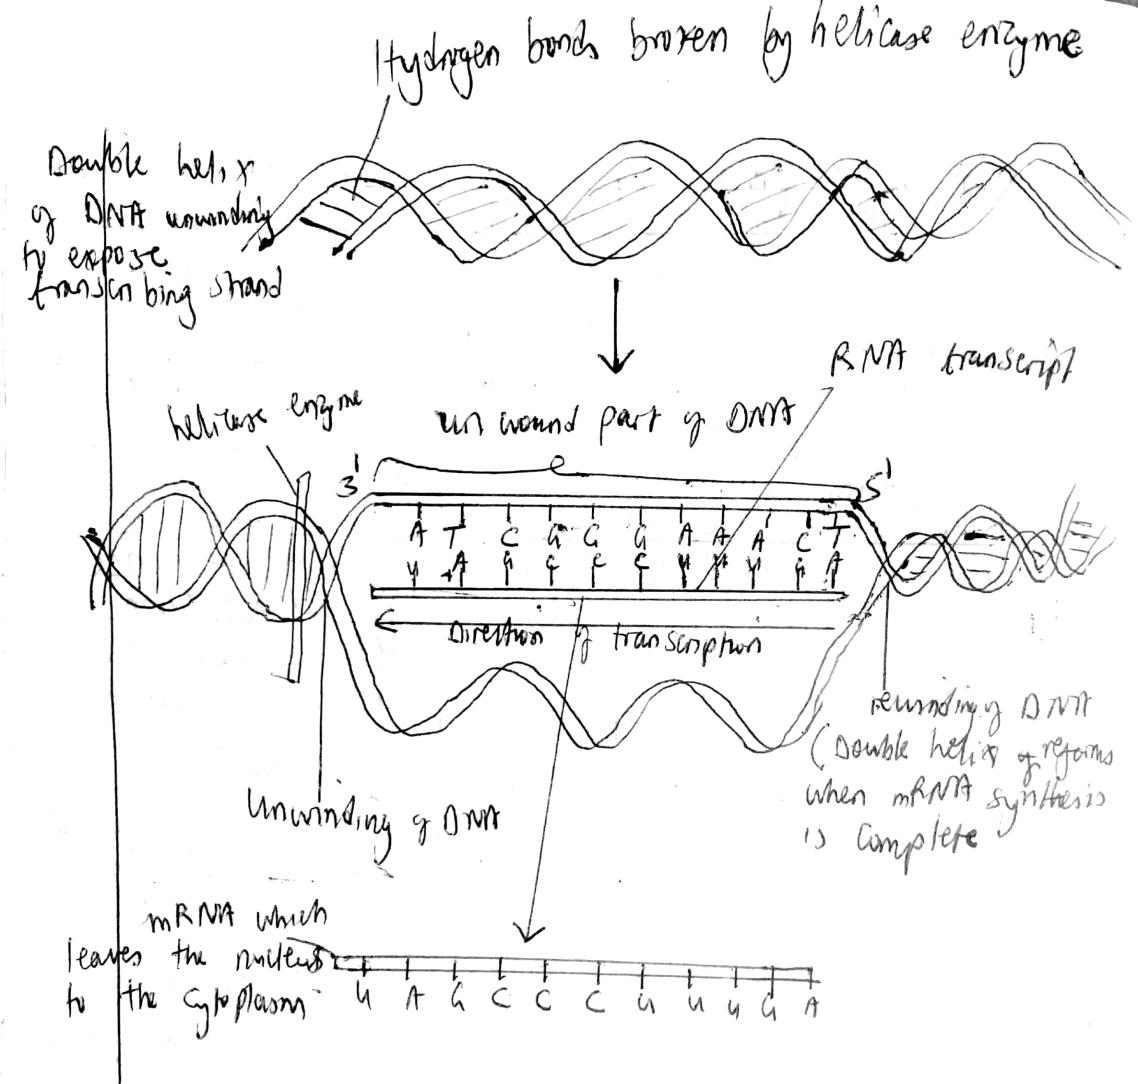 Hydrogen bonds broken by helicase enzyme
Double helix
of DNA unwinding
to expose
transcribing strand
RNA transcript
helicase enzyme
un wound part of DNA
3'
5'
A T C G G G A A A C T
U A G C C C U U U G A
Direction of transcription
rewinding of DNA
(Double helix of reforms
when mRNA synthesis
is complete
Unwinding of DNA
mRNA which
leaves the nucleus
to the cytoplasm
U A G C C C U U U G A